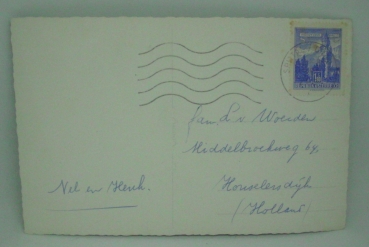 Fam L. v. Woerden
Middelbroekweg 64
Honselersdijk
(Holland)
Nel en Henk.